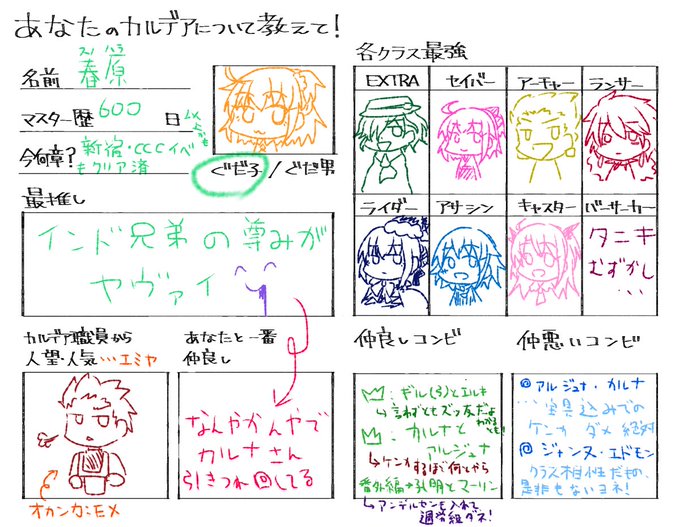 あなたのカルデアについて教えて!
名前 春原
スノ ハラ
マスター歴 600 日
今何章? 新宿・CCCイベ
もクリア済
ぐだ子 / ぐだ男
最推し
インド兄弟の尊みが
ヤヴァイ
カルデア職員から
人望・人気 …エミヤ
オカンカエメ
あなたと一番
仲良し
なんやかんやで
カルナさん
引きつれ回してる
各クラス最強
EXTRA
セイバー
アーチャー
ランサー
ライダー
アサシン
キャスター
バーサーカー
タニキ
むずかし
...
仲良しコンビ
:ギル(弓)とエルキ
言わずともズッ友だよ
わかるとも!
:カルナと
アルジュナ
ケンカするほど何とやら
番外編→孔明とマーリン
アンデルセンも入れて
過労組ダネ!
仲悪いコンビ
@アルジュナ・カルナ
…宝具込みでの
ケンカ ダメ 絶対
@ジャンヌ・エドモン
クラス相性だもの、
是非もないヨネ!